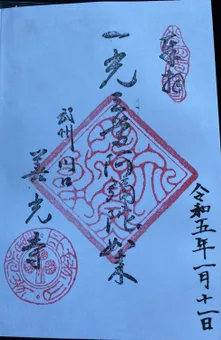 奉拝
一光三尊阿弥陀如来
武州川口
善光寺
令和五年一月十一日